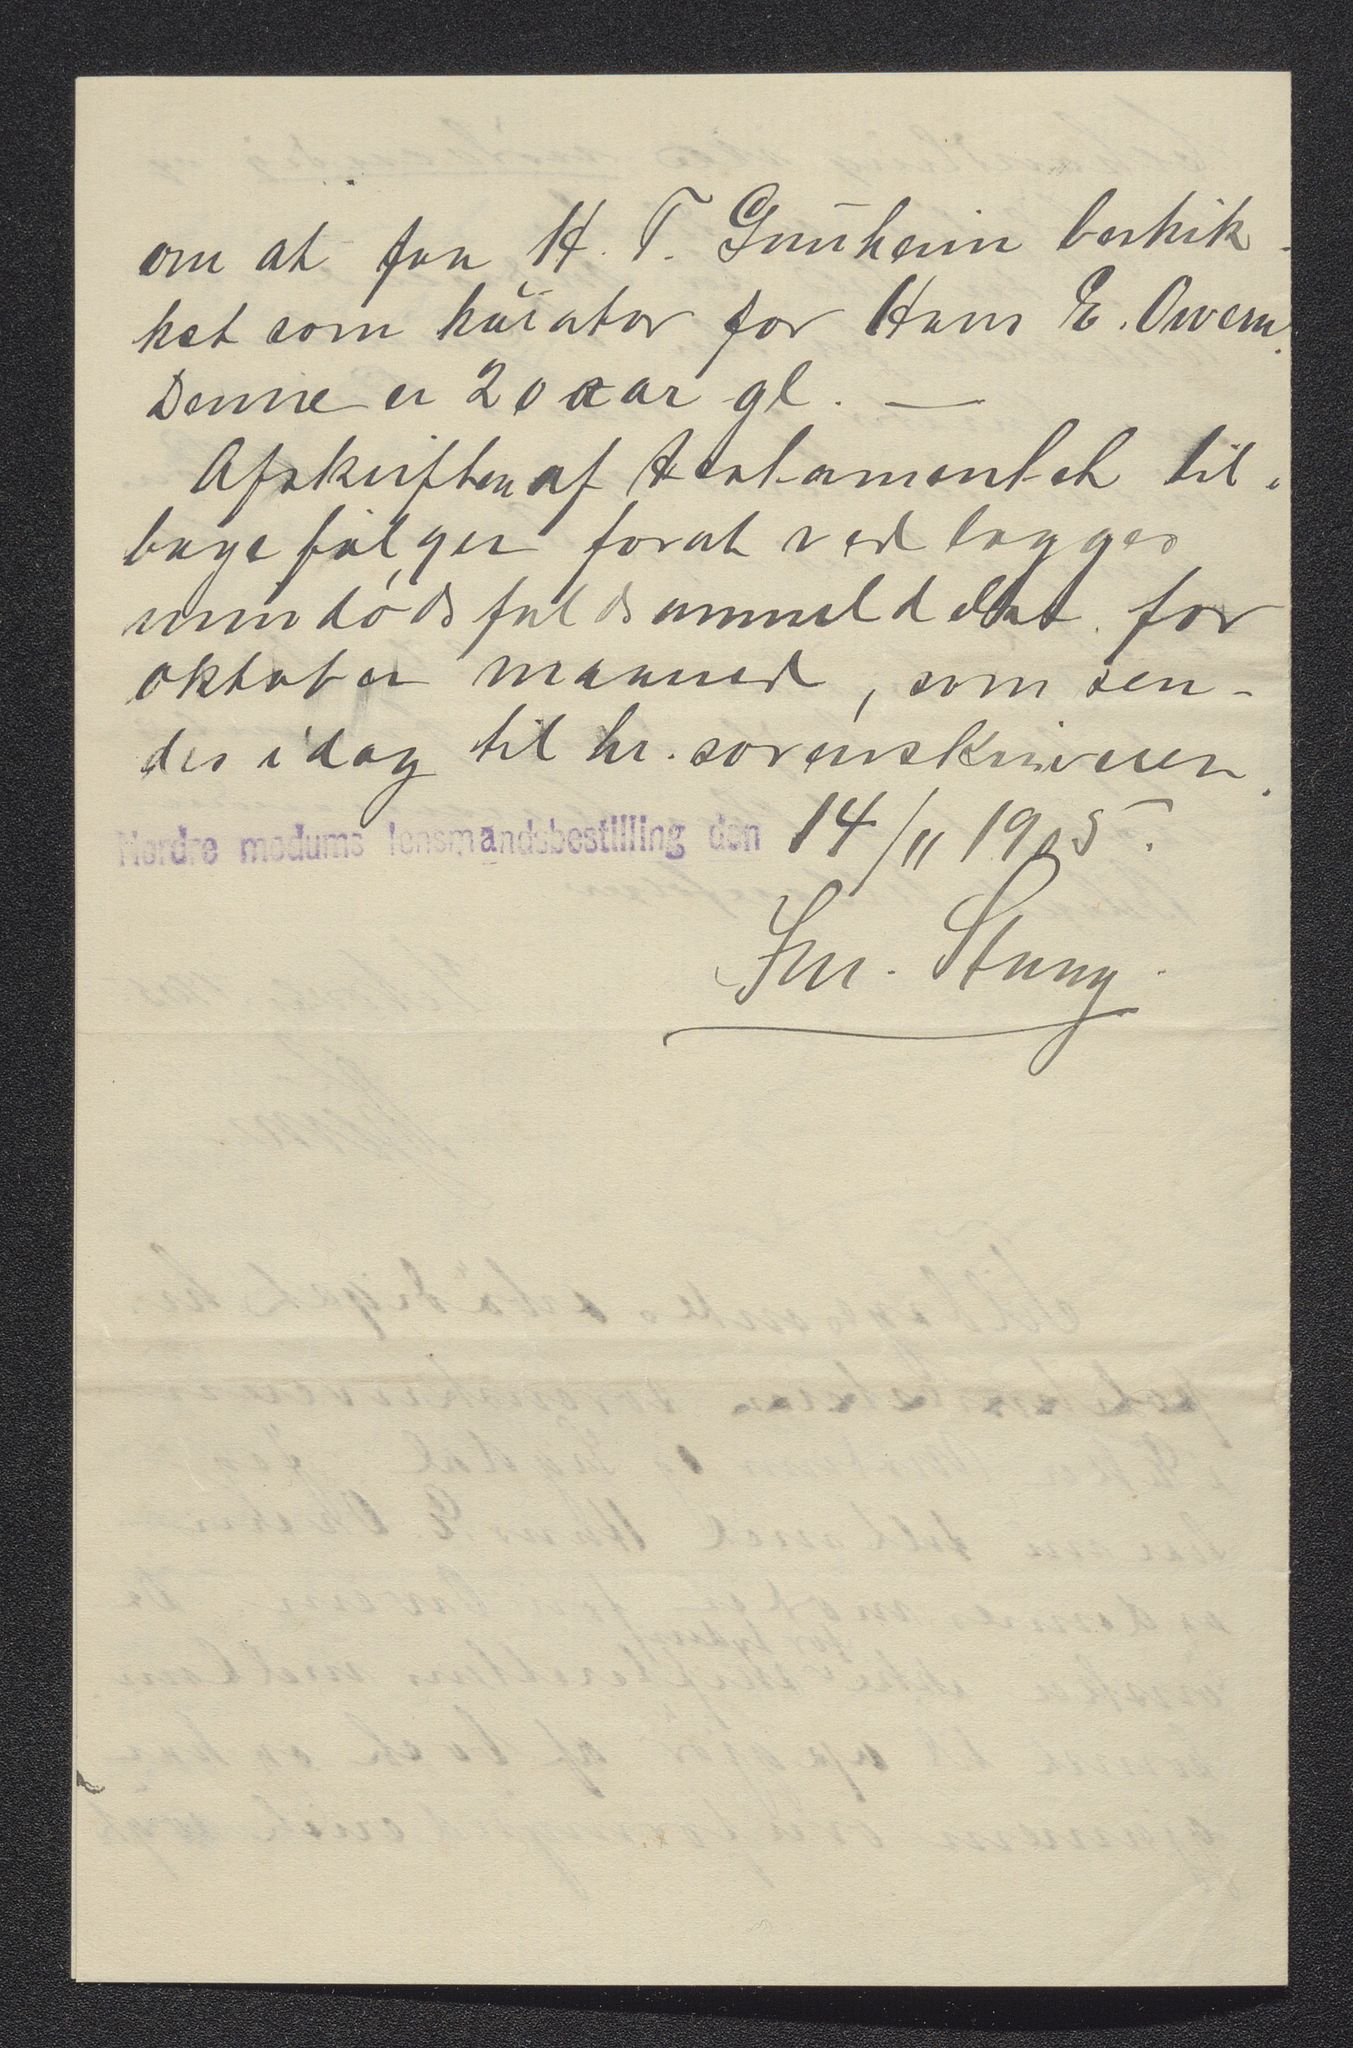 om at faa H. T. Gunheim beskik-
ket som kurator for Hans E. Overu.
Denne er 20 aar gl. —
Afskriften af testamentet til-
bagefølger forat vedlægges
min dødsfaldsanmeldelse for
oktober maaned, som sen-
des idag til hr. sorenskriveren.
Nordre modums lensmandsbestilling den 14/11 1905.
Stang.